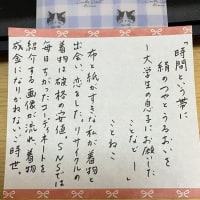 「時間という帯に
絹のつやとうるおいを
～大学生の息子にお願いした
ことなど―」
ことねこ
布と紙がすきな私が着物と
出会い恋をした。リサイクルの
着物は破格の安値、SNSでは
毎日ちがったコーディネートを
紹介する画像が流れ、着物
成金になりかねないご時世